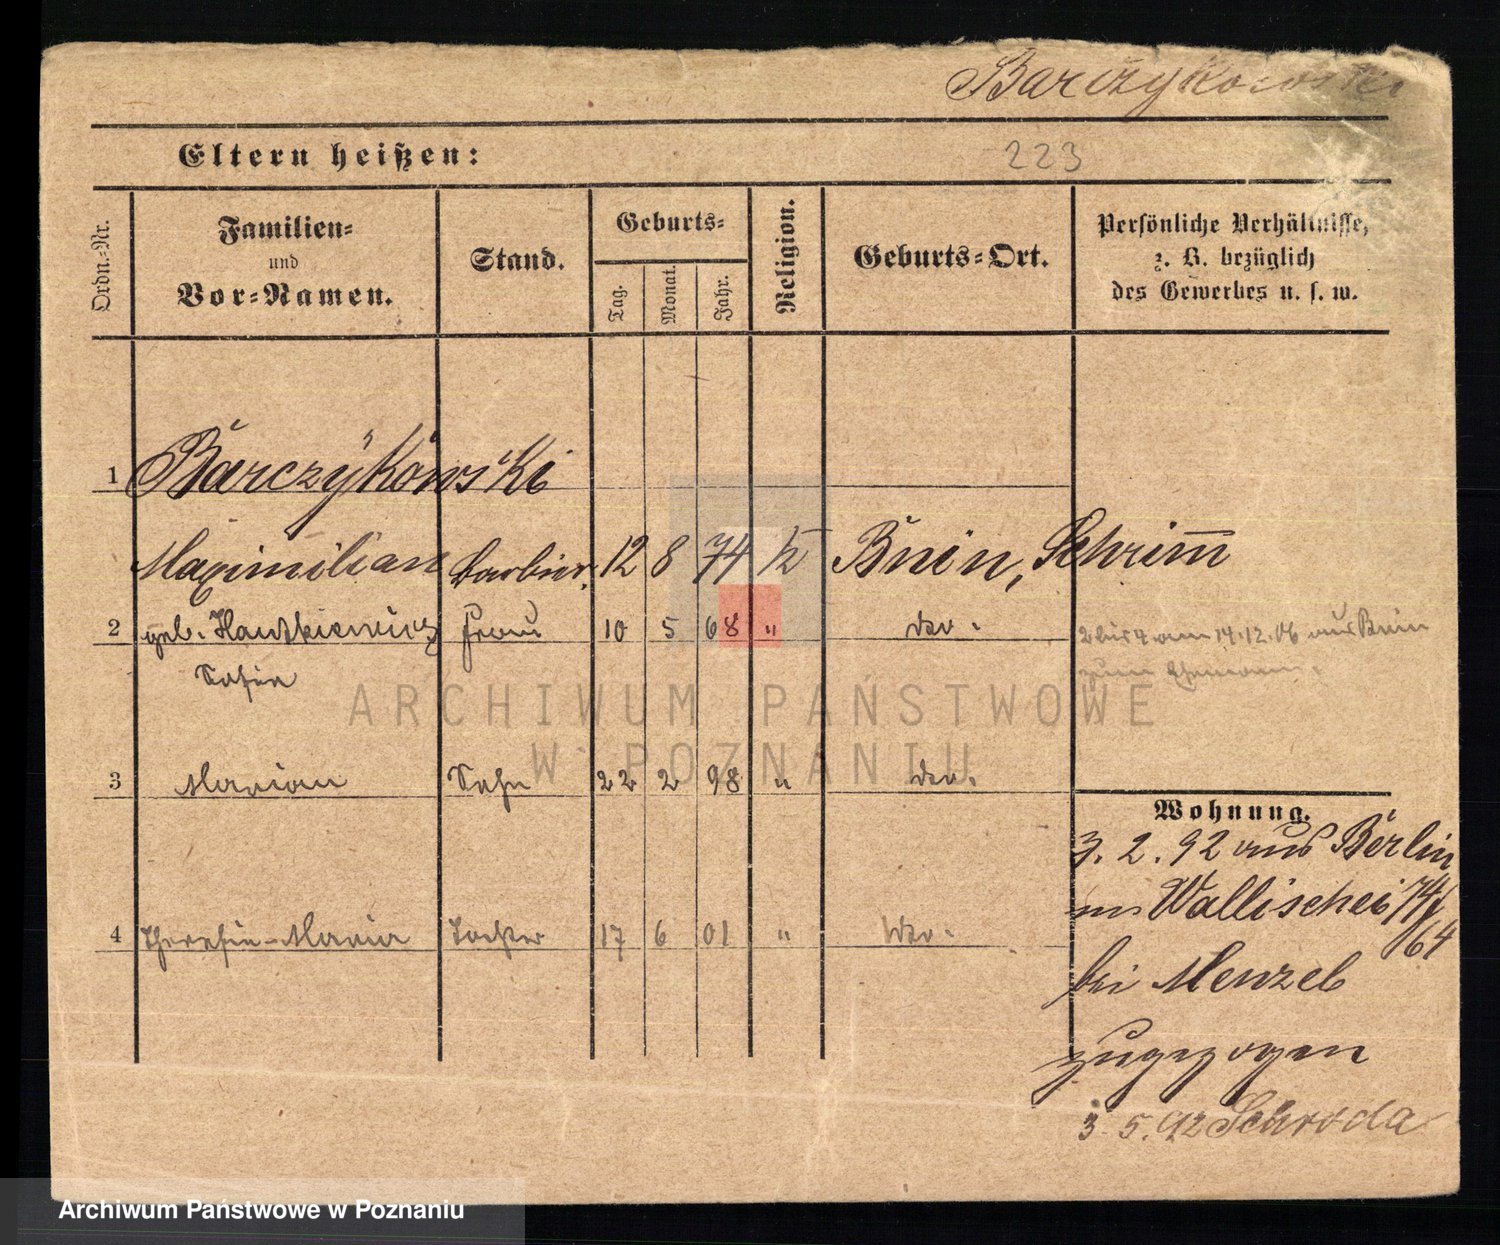 Barczykowski
Eltern heißen:
223
Ordn.-Nr.
Familien-
und
Vor-Namen.
Stand.
Geburts-
Tag.
Monat.
Jahr.
Religion.
Geburts-Ort.
Persönliche Verhältnisse,
z. B. bezüglich
des Gewerbes u. s. w.
1 Barczykowski
Maximilian Barbier. 12 8 74 k Bnin, Schrimm
2 geb. Frau 10 5 68 " do.
Sofia
2 bis 4 am 14.12.06 aus Bnin
zum Ehemann.
ARCHIWUM PAŃSTWOWE
W POZNANIU
3 Marian Sohn 22 2 98 " do.
Wohnung.
3. 2. 92 aus Berlin
Wallischei 74/
64
4 Maria Tochter 17 6 01 " do.
bei Menzel
zugezogen
3. 5. 92 Schroda
Archiwum Państwowe w Poznaniu